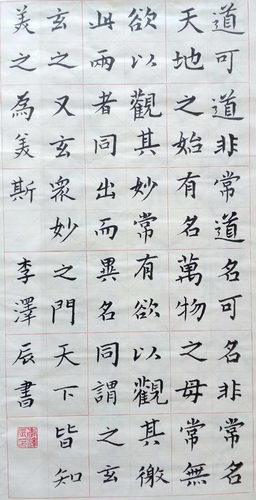 道可道非常道名可名非常名
天地之始有名萬物之母常無
欲以觀其妙常有欲以觀其徼
此兩者同出而異名同謂之玄
玄之又玄衆妙之門天下皆知
美之為美斯
李澤辰書